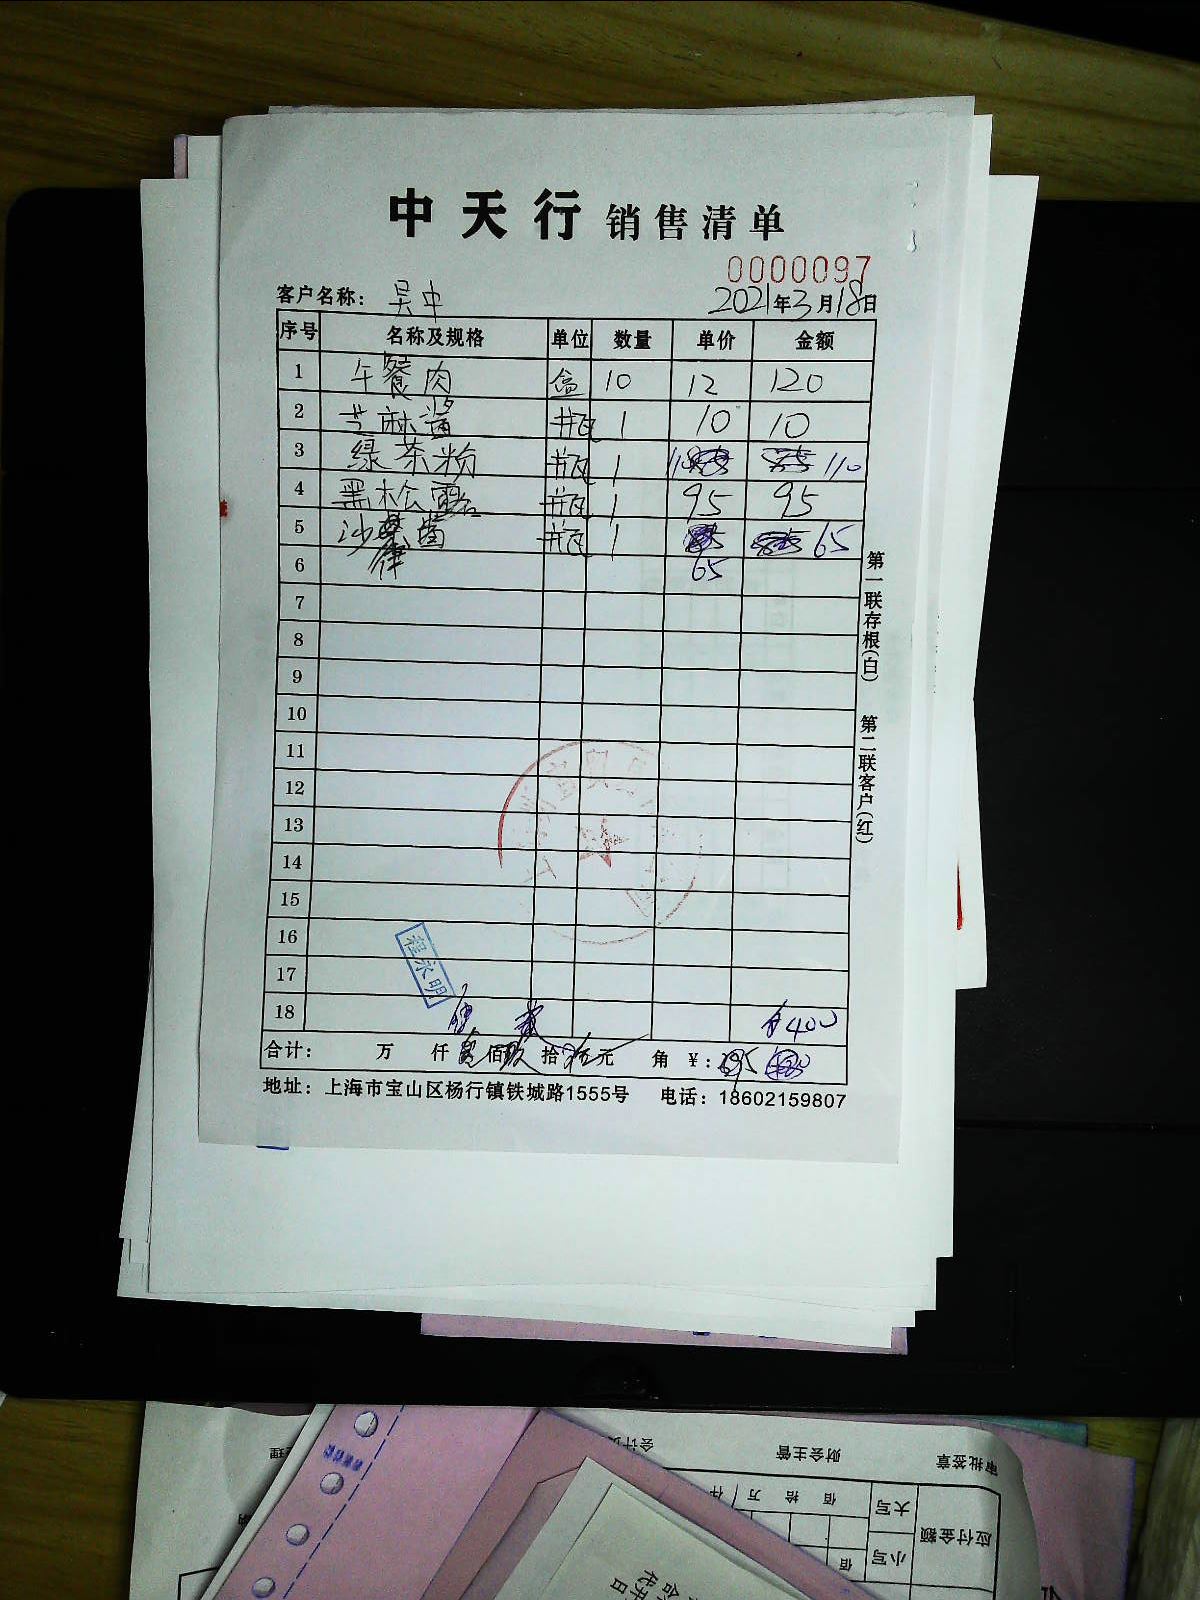 中天行 销售清单
0000097
客户名称: 吴中 2021年3月18日
序号 名称及规格 单位 数量 单价 金额
1 午餐肉 盒 10 12 120
2 芝麻酱 瓶 1 10 10
3 绿茶粉 瓶 1 110 110
4 黑松露 瓶 1 95 95
5 沙律酱 瓶 1 65 65
6
7
8
9
10
11
12
13
14
15
16
17
18 ¥400
程永明
合计: 万 仟 佰 拾 元 角 ¥:
地址:上海市宝山区杨行镇铁城路1555号 电话:18602159807
第一联存根(白) 第二联客户(红)
会计 财会主管 审批签章
应付金额 大写 佰 拾 万 仟
小写 佰